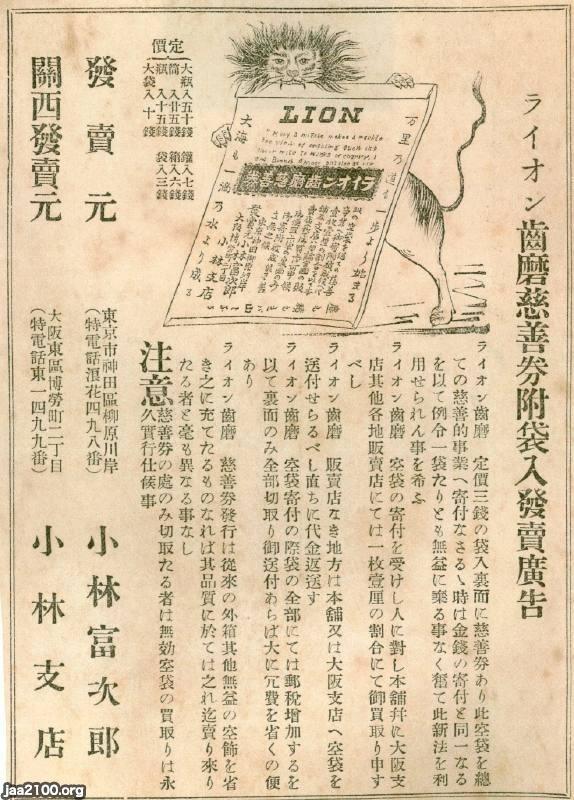 ライオン齒磨慈善劵附袋入發賣廣告
LION
万里乃道も一歩より始まる
大海も一滴乃水より成る
ライオン齒磨慈善劵
小林富次郎
小林支店
ライオン齒磨 定價三錢の袋入裏面に慈善劵あり此空袋を總
ての慈善的事業へ寄付なさるゝ時は金錢の寄付と同一なる
を以て例令一袋たりとも無益に棄る事なく奮て此新法を利
用せられん事を希ふ
ライオン齒磨 空袋の寄付を受けし人に對し本舖幷に大阪支
店其他各地販賣店にては一枚壹厘の割合にて御買取り申す
べし
ライオン齒磨 販賣店なき地方は本舖又は大阪支店へ空袋を
送付せらるべし直ちに代金返送す
ライオン齒磨 空袋寄付の際袋の全部にては郵稅增加するを
以て裏面のみ全部切取り御送付あらば大に冗費を省くの便
あり
ライオン齒磨 慈善劵發行は從來の外箱其他無益の空飾を省
き之に充てたるものなれば其品質に於ては之れ迄賣り來り
たる者と毫も異なる事なし
注意 慈善劵の處のみ切取たる者は無効空袋の買取りは永
久實行仕候事
定價
大瓶入五十錢 罐入七錢
筒入廿五錢 箱入六錢
瓶入十五錢 袋入三錢
大袋入十錢
發賣元
東京市神田區柳原川岸
(特電話浪花四九八番)
小林富次郎
關西發賣元
大阪東區博勞町二丁目
(特電話東一四九九番)
小林支店
jaa2100.org